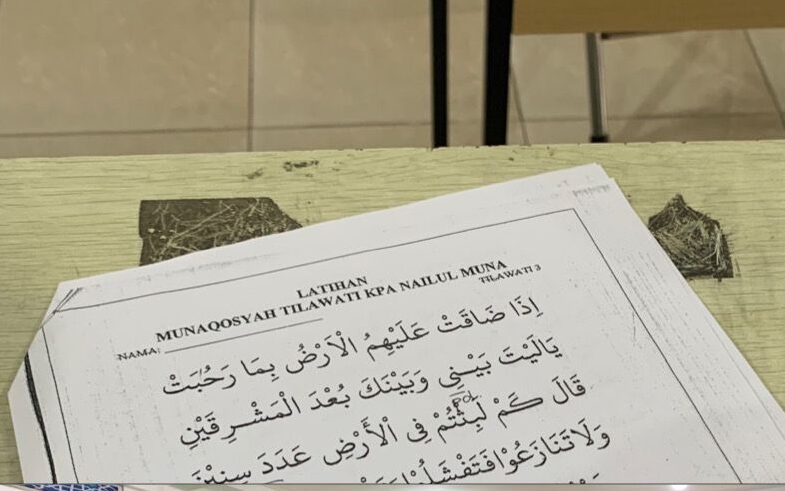 LATIHAN
MUNAQOSYAH TILAWATI KPA NAILUL MUNA
TILAWATI 3
NAMA:
اِذَا ضَاقَتْ عَلَيْهِمُ الْاَرْضُ بِمَا رَحُبَتْ
يَالَيْتَ بَيْنِى وَبَيْنَكَ بُعْدَ الْمَشْرِقَيْنِ
قَالَ كَمْ لَبِثْتُمْ فِى الْأَرْضِ عَدَدَ سِنِيْنَ
وَلَاتَنَازَعُوْا فَتَفْشَلُوْا